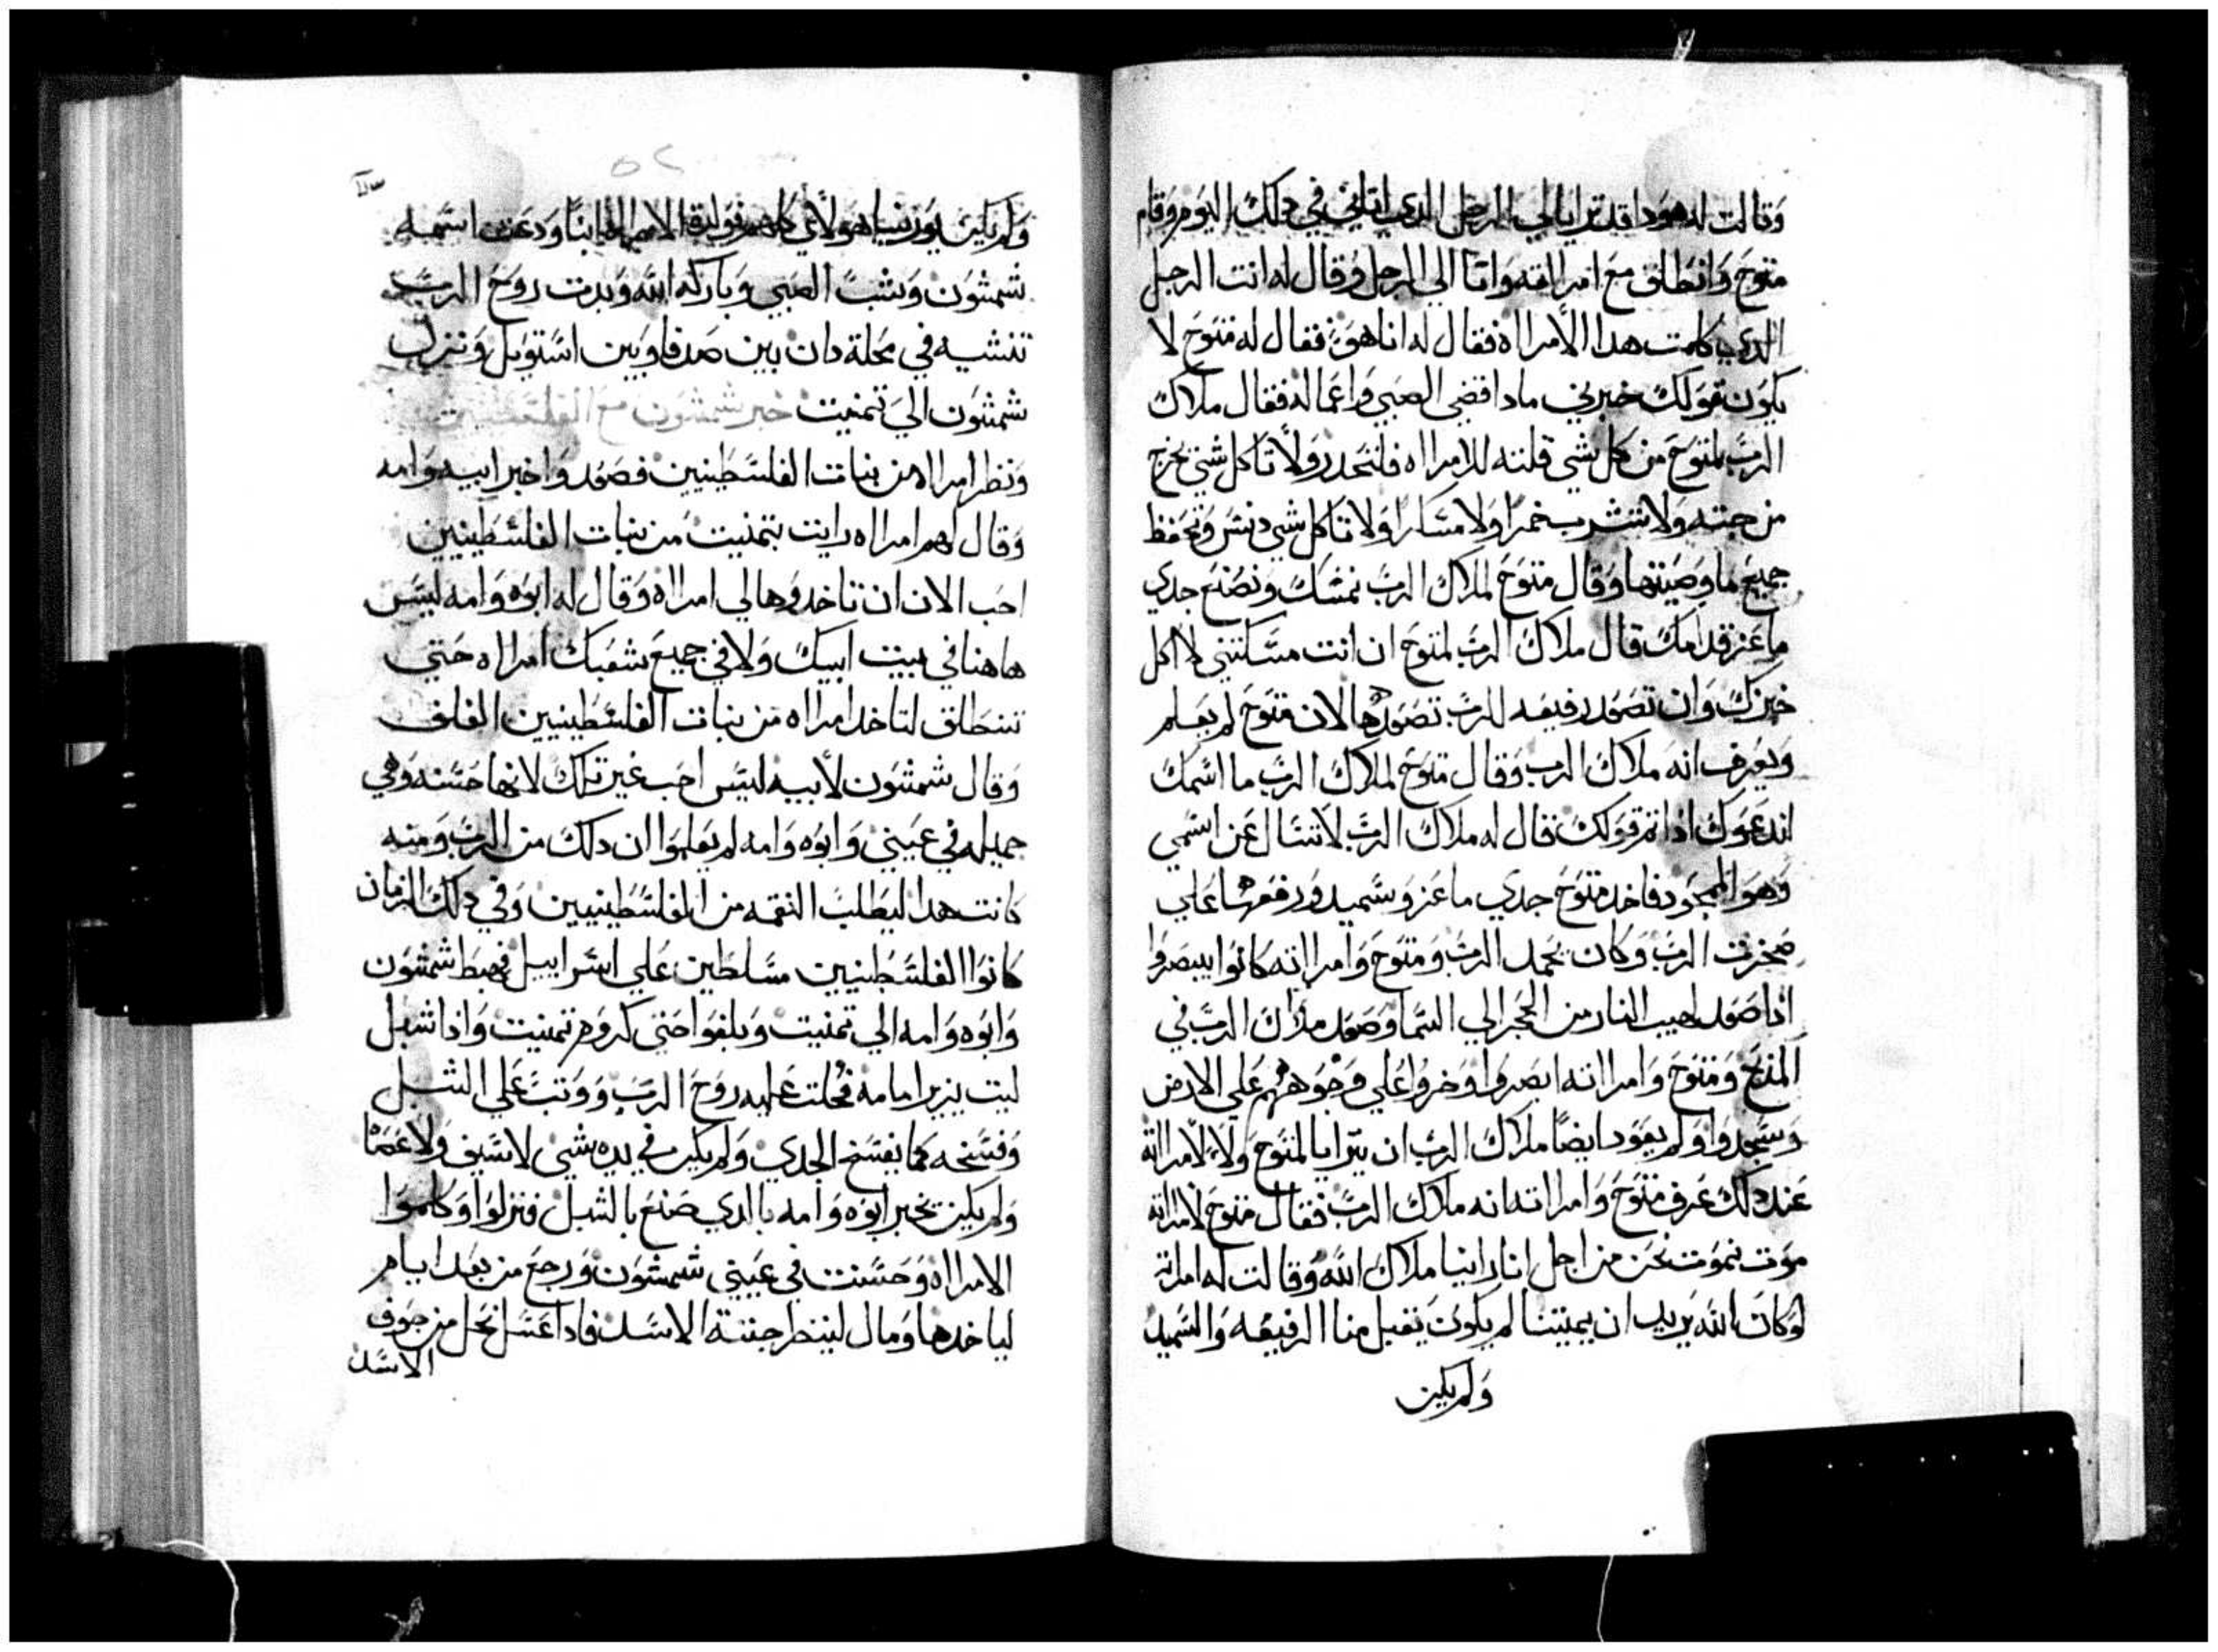 وقالت له هودا قد ترايا لي الرجل الدي اتاني في دلك اليوم وقام
منوح وانطلق مع امرااته واتا الي الرجل وقال له انت الرجل
الدي كلمت هدا الأمرااه فقال له انا هو فقال له منوح لا
يكون قولك خبرني مادا قضي الصبي واعماله فقال ملاك
الرب لمنوح من كل شي قلته للامرااه فلتحدر ولا تاكل شي يخرج
من جبنه ولا تشرب خمرا ولا مسكرا ولا تاكل شي دنس وتحفظ
جميع ما وصيتها وقال منوح لملاك الرب نمسك ونصنع جدي
ماعز قدامك قال ملاك الرب لمنوح ان انت مسكتني لا اكل
خبزك وان تصعد رفيعه للرب تصعدها لان منوح لم يعلم
ويعرف انه ملاك الرب وقال منوح لملاك الرب ما اسمك
اندعوك ادا تم قولك قال له ملاك الرب لا تسال عن اسمي
وهو الممجود فاخد منوح جدي ماعز وسميد ورفعها علي
صخرت الرب وكان يحمد الرب ومنوح وامرااته كانوا يبصروا
ادا صعد لهيب النار من الحجر الي السما وصعد ملاك الرب في
المذبح ومنوح وامرااته ابصروا وخروا علي وجوههم علي الارض
وسجدوا ولم يعود ايضا ملاك الرب ان يترايا لمنوح ولا لامرااته
عند دلك عرف منوح وامرااته انه ملاك الرب فقال منوح لامرااته
موت نموت نحن من اجل انا راينا ملاك الله وقالت له امراته
لو كان الله يريد ان يميتنا لم يكون يقبل منا الرفيعه والسميد
ولم يكن
٥٢
ولم يكن يورينا هولأي كلهم فولدة الامرااه ابنا ودعت اسمه
شمشون وشب الصبي وباركه الله وبدت روح الرب
تنشيه في محلة دان بين صدفا وبين استوبل ونزل
شمشون الي تمنيت خبر شمشون مع الفلسطنين
ونظر امرااه من بنات الفلسطينين فصعد واخبر ابيه وامه
وقال لهم امرااه رايت بتمنيت من بنات الفلسطينيين
احب الان ان تاخدوها لي امرااة وقال له ابوه وامه ليس
هاهنا في بيت ابيك ولا في جميع شعبك امرااه حتي
تنطلق لتاخد امرااه من بنات الفلسطينيين الغلف
وقال شمشون لأبيه ليس احب غير تلك لانها حسنه وهي
جميله في عيني وابوه وامه لم يعلموا ان دلك من الرب ومنه
كانت هدا ليطلب النقمه من الفلسطينيين وفي دلك الزمان
كانوا الفلسطينيين مسلطين علي اسراييل فهبط شمشون
وابوه وامه الي تمنيت وبلغوا حتي كروم تمنيت وادا شبل
ليت يزير امامه فحلت عليه روح الرب ووتب علي الشبل
وفسخه كما يفسخ الجدي ولم يكن في يده شي لا سيف ولا عصا
ولم يكن يخبر ابوه وامه بالدي صنع بالشبل فنزلوا وكلموا
الامرااه وحسنت في عيني شمشون ورجع من بعد ايام
لياخدها ومال لينظر جتتة الاسد فادا عسل نحل من جوف
الاسد